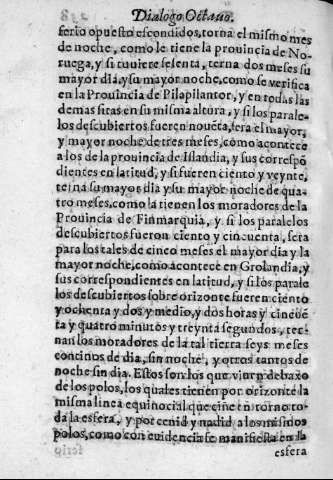 Dialogo Octauo.
serio opuesto escondidos, torna el mismo mes
de noche, como le tiene la prouincia de No-
ruega, y si tuuiere sesenta, terna dos meses su
mayor dia, y su mayor noche, como se verifica
en la Prouincia de Pilapilantor, y en todas las
demas sitas en su misma altura, y si los parale-
los descubiertos fueren nouẽta, sera el mayor,
y mayor noche de tres meses, como acontece
a los de la prouincia de Islandia, y sus correspõ
dientes en latitud, y si fueren ciento y veynte,
terna su mayor dia y su mayor noche de qua-
tro meses, como la tienen los moradores de la
Prouincia de Finmarquia, y si los paralelos
descubiertos fueron ciento y cincuenta, sera
para los tales de cinco meses el mayor dia y la
mayor noche, como acontece en Grolandia, y
sus correspondientes en latitud, y si los parale
los descubiertos sobre orizonte fueren ciento
y ochenta y dos y medio, y dos horas y cincuẽ
ta y quatro minutos y treynta segundos, ter-
nan los moradores de la tal tierra seys meses
continos de dia, sin noche, y otros tantos de
noche sin dia. Estos son los que viuen debaxo
de los polos, los quales tienen por orizonte la
misma linea equinocial que ciñe en torno to-
da la esfera, y por cenid y nadir a los mismos
polos, como con euidencia se manifiesta en la
esfera